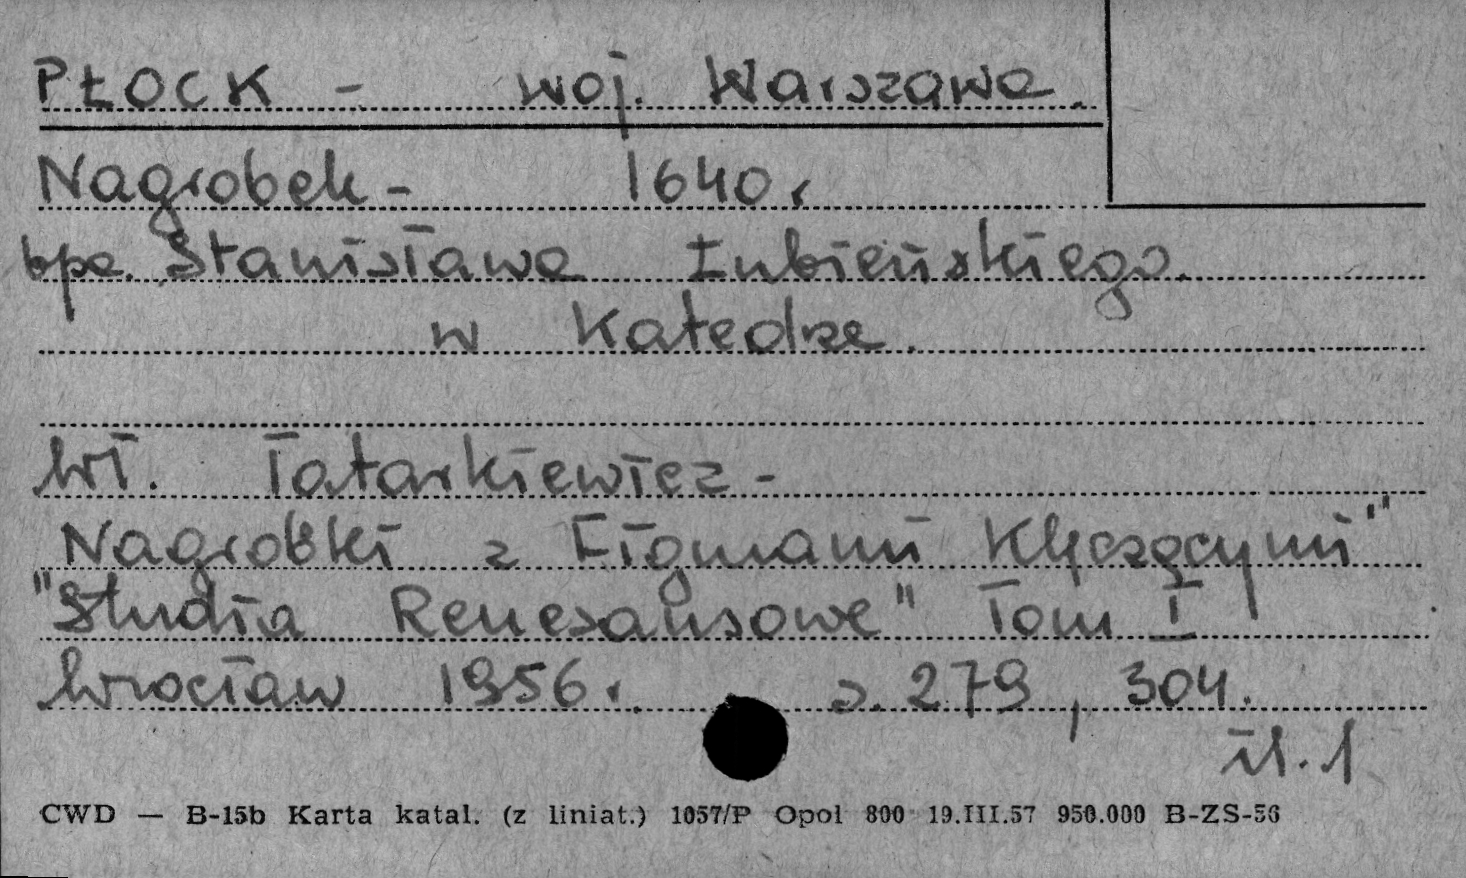 PŁOCK - woj. Warszawa.
Nagrobek - 1640 r
bpa. Stanisława Łubieńskiego.
w Katedrze.
Wł. Tatarkiewicz -
Nagrobki z Figurami Klęczącymi"
"Studia Renesansowe" Tom I
Wrocław 1956 r. s. 279, 304.
il. 1
CWD — B-15b Karta katal. (z liniat.) 1057/P Opol 800 19.III.57 950.000 B-ZS-56